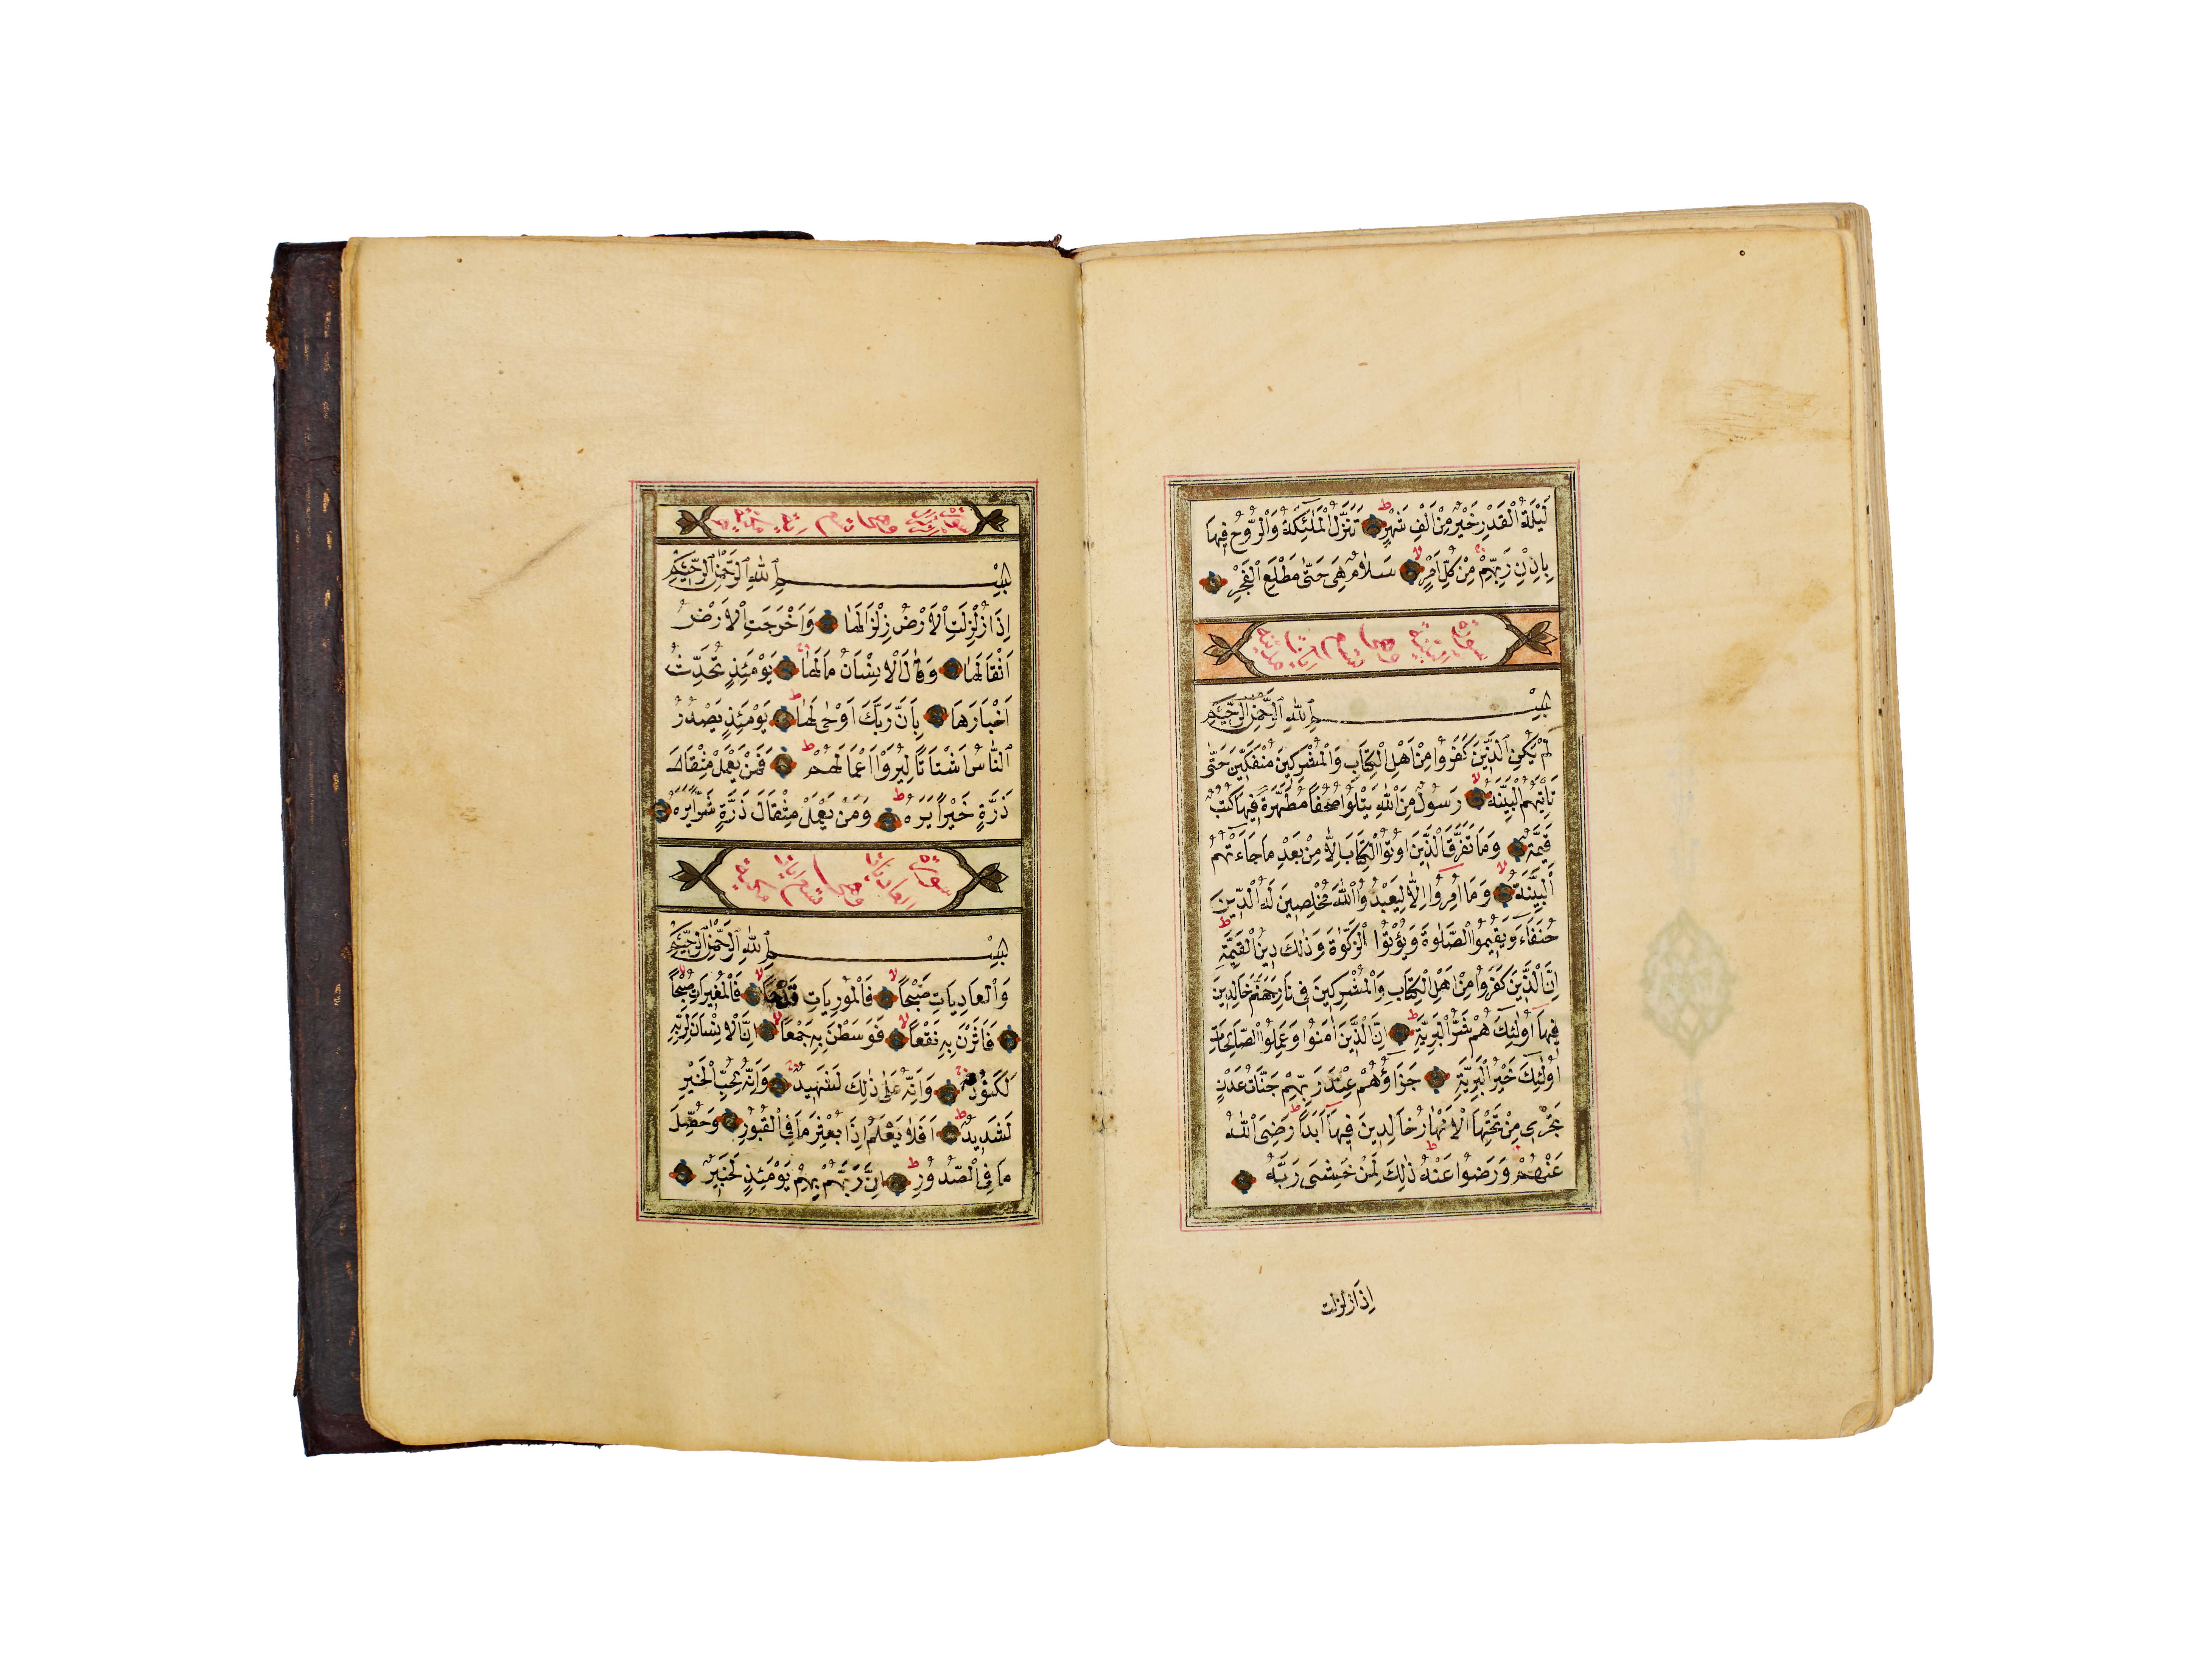 لَيْلَةُ الْقَدْرِ خَيْرٌ مِنْ اَلْفِ شَهْرٍ ط تَنَزَّلُ الْمَلٰئِكَةُ وَالْرُّوحُ فِيهَا
بِاِذْنِ رَبِّهِمْ مِنْ كُلِّ اَمْرٍ لا سَلَامٌ هِىَ حَتّٰى مَطْلَعِ الْفَجْرِ
سورة البينة وهى ايات مدنية
بِسْمِ اللهِ الرَّحْمٰنِ الرَّحِيمِ
لَمْ يَكُنِ الَّذِينَ كَفَرُوا مِنْ اَهْلِ الْكِتَابِ وَالْمُشْرِكِينَ مُنْفَكِّينَ حَتّٰى
تَاْتِيَهُمُ الْبَيِّنَةُ لا رَسُولٌ مِنَ اللهِ يَتْلُوا صُحُفًا مُطَهَّرَةً فِيهَا كُتُبٌ
قَيِّمَةٌ وَمَا تَفَرَّقَ الَّذِينَ اُوتُوا الْكِتَابَ اِلَّا مِنْ بَعْدِ مَا جَاءَتْهُمُ
الْبَيِّنَةُ لا وَمَا اُمِرُوا اِلَّا لِيَعْبُدُوا اللهَ مُخْلِصِينَ لَهُ الدِّينَ
حُنَفَاءَ وَيُقِيمُوا الصَّلٰوةَ وَيُؤْتُوا الزَّكٰوةَ وَذٰلِكَ دِينُ الْقَيِّمَةِ ط
اِنَّ الَّذِينَ كَفَرُوا مِنْ اَهْلِ الْكِتَابِ وَالْمُشْرِكِينَ فِى نَارِ جَهَنَّمَ خَالِدِينَ
فِيهَا اُولٰئِكَ هُمْ شَرُّ الْبَرِيَّةِ ط اِنَّ الَّذِينَ اٰمَنُوا وَعَمِلُوا الصَّالِحَاتِ
اُولٰئِكَ خَيْرُ الْبَرِيَّةِ جَزَاؤُهُمْ عِنْدَ رَبِّهِمْ جَنَّاتُ عَدْنٍ
تَجْرِى مِنْ تَحْتِهَا الْاَنْهَارُ خَالِدِينَ فِيهَا اَبَدًا ط رَضِىَ اللهُ
عَنْهُمْ وَرَضُوا عَنْهُ ط ذٰلِكَ لِمَنْ خَشِىَ رَبَّهُ
اذا زلزلت
سورة وهى ايات
بِسْمِ اللهِ الرَّحْمٰنِ الرَّحِيمِ
اِذَا زُلْزِلَتِ الْاَرْضُ زِلْزَالَهَا وَاَخْرَجَتِ الْاَرْضُ
اَثْقَالَهَا وَقَالَ الْاِنْسَانُ مَالَهَا يَوْمَئِذٍ تُحَدِّثُ
اَخْبَارَهَا بِاَنَّ رَبَّكَ اَوْحٰى لَهَا ط يَوْمَئِذٍ يَصْدُرُ
النَّاسُ اَشْتَاتًا لِيُرَوْا اَعْمَالَهُمْ ط فَمَنْ يَعْمَلْ مِثْقَالَ
ذَرَّةٍ خَيْرًا يَرَهُ ط وَمَنْ يَعْمَلْ مِثْقَالَ ذَرَّةٍ شَرًّا يَرَهُ
سورة العاديات وهى ايات مكية
بِسْمِ اللهِ الرَّحْمٰنِ الرَّحِيمِ
وَالْعَادِيَاتِ ضَبْحًا لا فَالْمُورِيَاتِ قَدْحًا لا فَالْمُغِيرَاتِ صُبْحًا لا
فَاَثَرْنَ بِهِ نَقْعًا لا فَوَسَطْنَ بِهِ جَمْعًا لا اِنَّ الْاِنْسَانَ لِرَبِّهِ
لَكَنُودٌ وَاِنَّهُ عَلٰى ذٰلِكَ لَشَهِيدٌ وَاِنَّهُ لِحُبِّ الْخَيْرِ
لَشَدِيدٌ ط اَفَلَا يَعْلَمُ اِذَا بُعْثِرَ مَا فِى الْقُبُورِ وَحُصِّلَ
مَا فِى الصُّدُورِ ط اِنَّ رَبَّهُمْ بِهِمْ يَوْمَئِذٍ لَخَبِيرٌ